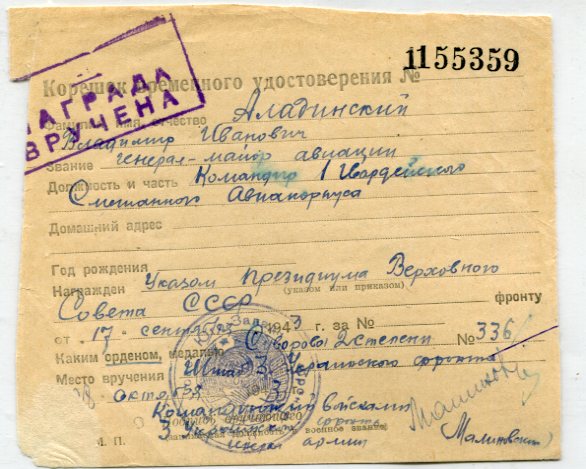 1155359
Корешок временного удостоверения №
НАГРАДА
ВРУЧЕНА
Фамилия, имя, отчество Аладинский
Владимир Иванович
Звание генерал-майор авиации
Должность и часть Командир 1 Гвардейского
Смешанного Авиакорпуса
Домашний адрес
Год рождения
Награжден Указом Президиума Верховного
(указом или приказом)
Совета СССР фронту
от 17 сентября 1943 г. за №
Каким орденом, медалью Суворова 2 степени № 336
Место вручения Штаб 3 Украинского фронта
октября
Командующий войсками
3 Украинского фронта
генерал армии
Малиновский
М. П.